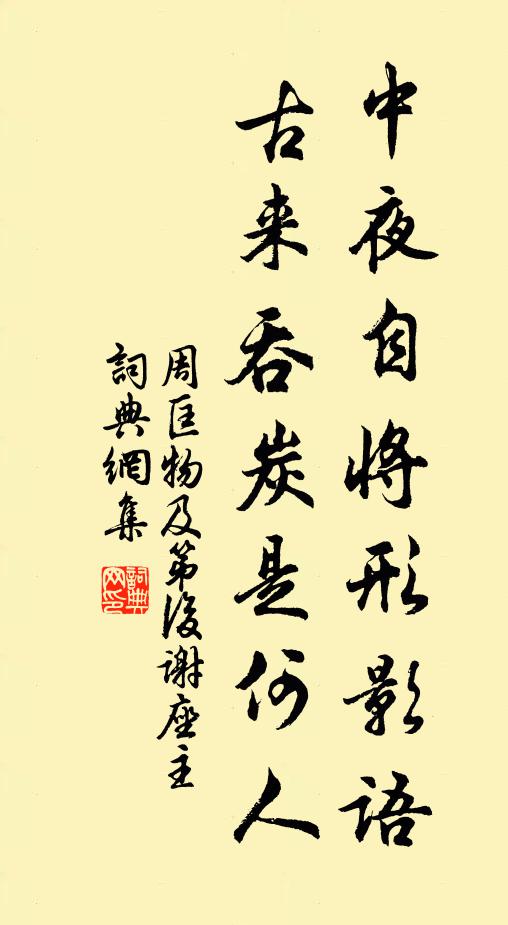 中夜自将形影語
古来吞炭是何人
周匡物及第後謝座主
詞典網集
詞典网印